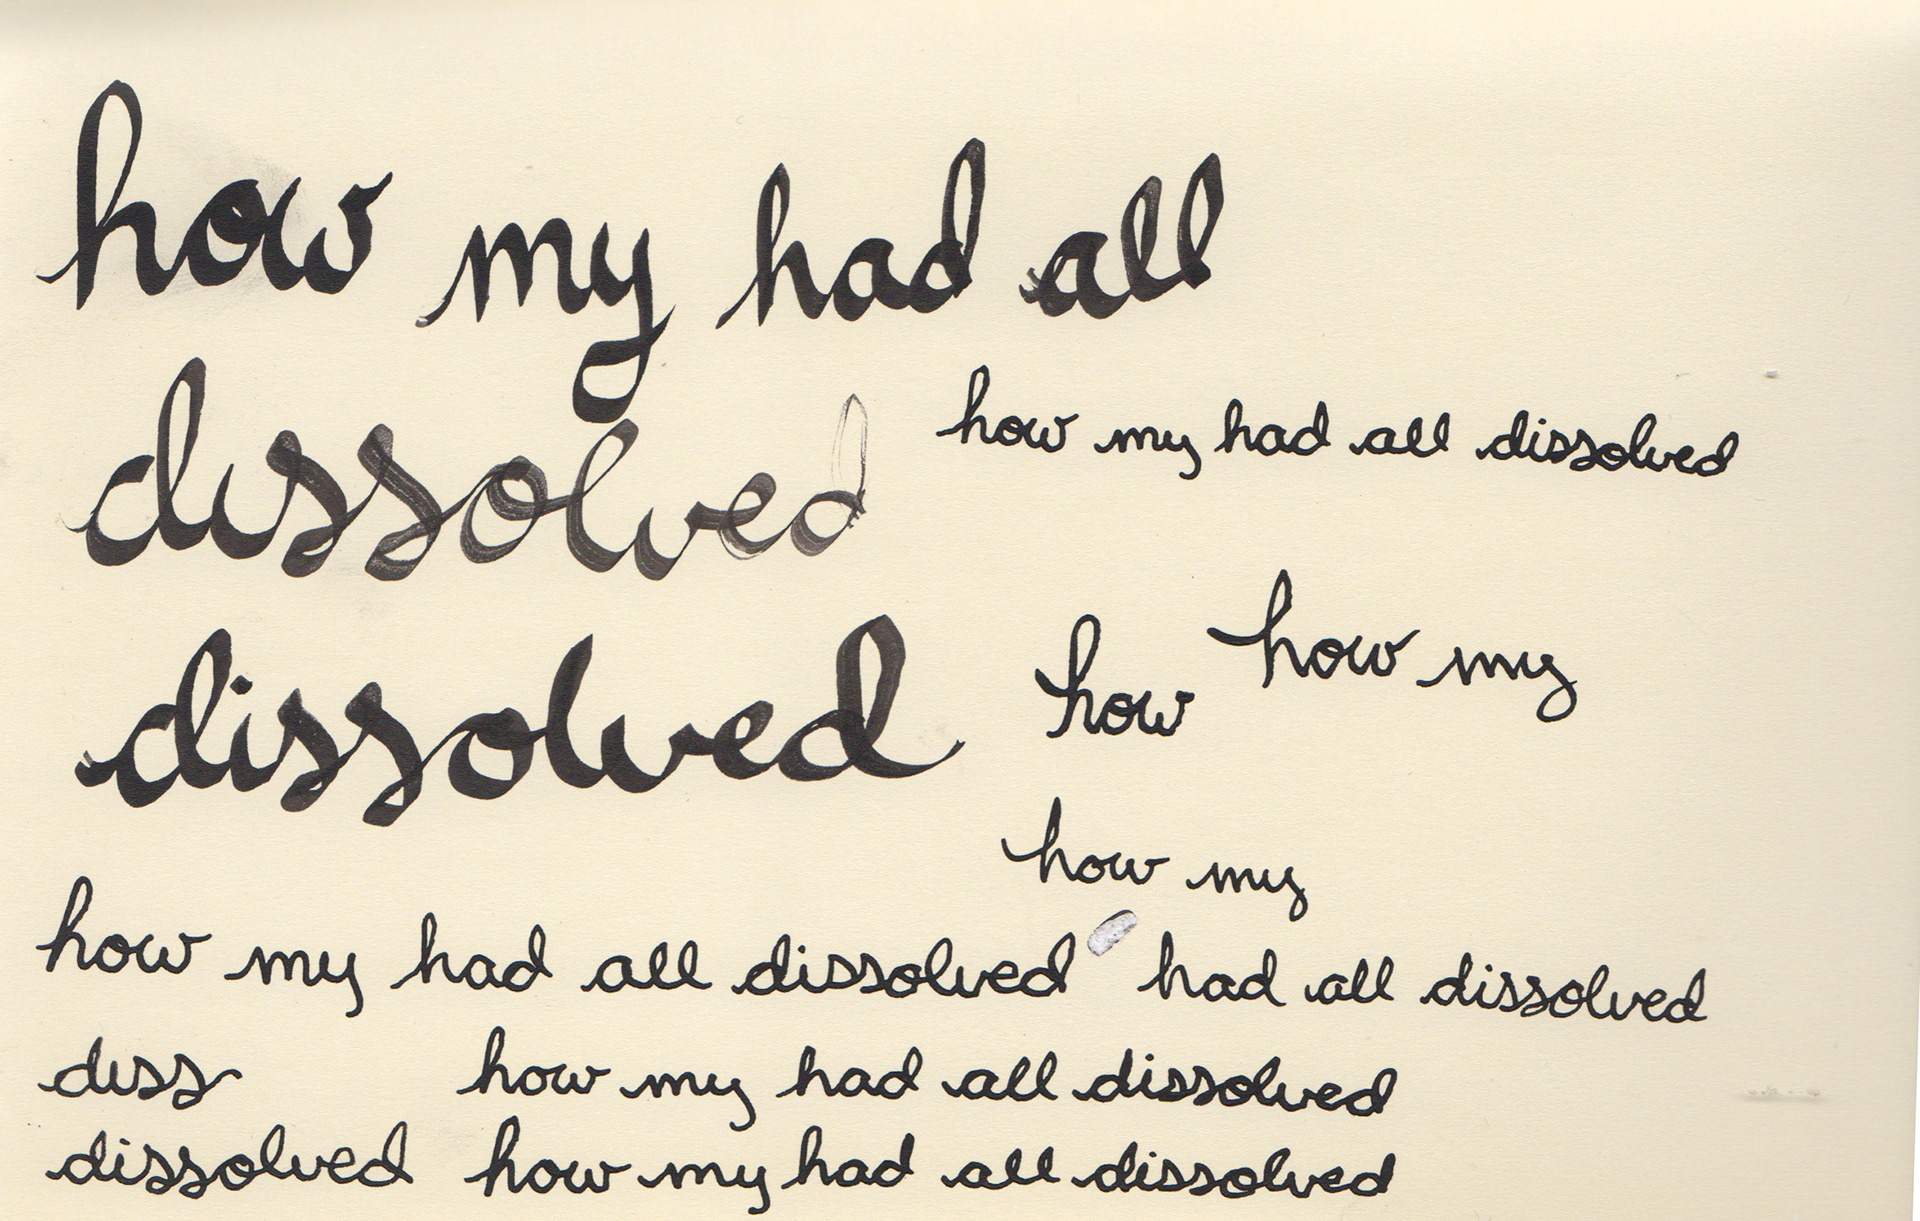 how my had all
dissolved
how my had all dissolved
dissolved
how
how my
how my
how my had all dissolved
had all dissolved
diss
how my had all dissolved
dissolved
how my had all dissolved